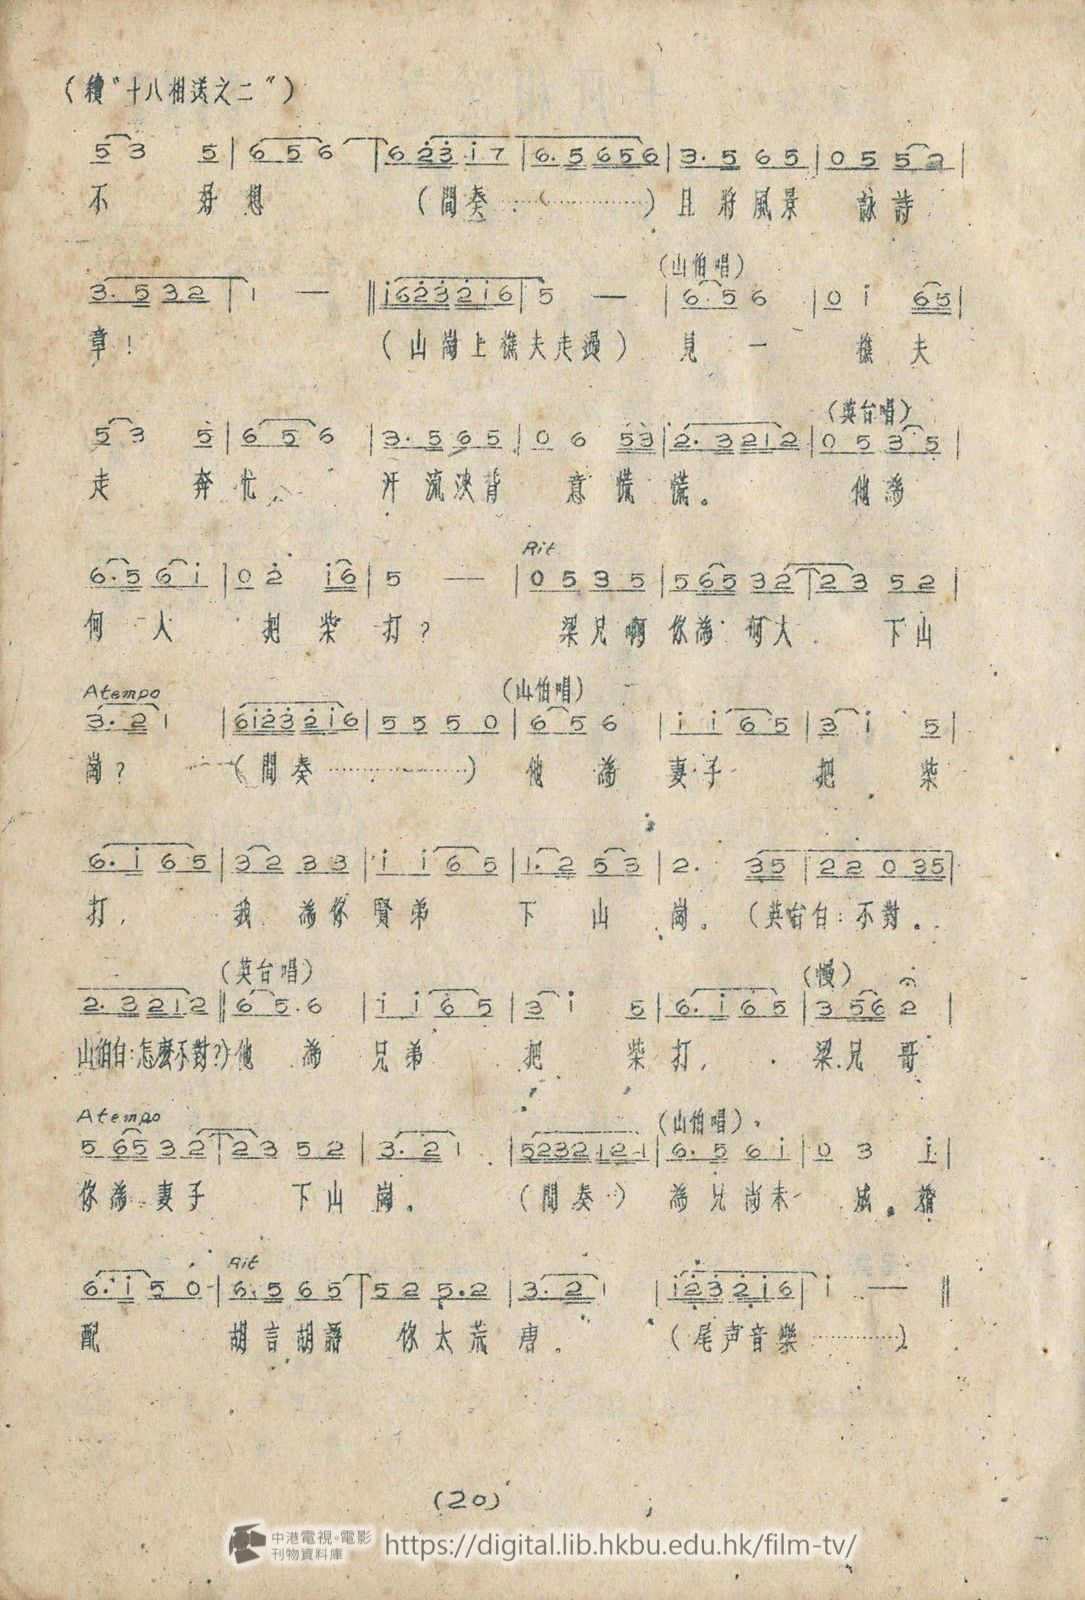 （續“十八相送之二”）
5 3 5 | 6 5 6 | 6 2 3 . 1 7 | 6 . 5 6 5 6 | 3 . 5 6 5 | 0 5 5 2 |
不 好 想 （間奏 ………… ） 且 將 風 景 詠 詩
（山伯唱）
3 . 5 3 2 | 1 — ‖ 1 6 2 3 2 1 6 | 5 — | 6 . 5 6 | 0 1 6 5 |
章！ （山崗上樵夫走過） 見 一 樵 夫
（英台唱）
5 3 5 | 6 5 6 | 3 . 5 6 5 | 0 6 5 3 | 2 . 3 2 1 2 | 0 5 3 5 |
走 奔 忙、 汗 流 浹 背 意 慌 慌。 他 為
Rit
6 . 5 6 1 | 0 2 1 6 | 5 — | 0 5 3 5 | 5 6 5 3 2 | 2 3 5 2 |
何 人 把 柴 打？ 梁 兄 啊 你 為 何 人 下 山
Atempo （山伯唱）
3 . 2 1 | 6 1 2 3 2 1 6 | 5 5 5 0 | 6 5 6 | 1 1 6 5 | 3 1 5 |
崗？ （間奏 ………… ） 他 為 妻 子 把 柴
6 . 1 6 5 | 3 2 3 3 | 1 1 6 5 | 1 . 2 5 3 | 2 . 3 5 | 2 2 0 3 5 |
打， 我 為 你 賢 弟 下 山 崗。 （英台白：不對。
（英台唱） （慢）
2 . 3 2 1 2 ‖ 6 5 . 6 | 1 1 6 5 | 3 1 5 | 6 . 1 6 5 | 3 5 6 2 |
山伯白：怎麼不對？） 他 為 兄 弟 把 柴 打， 梁 兄 哥
Atempo （山伯唱）
5 6 5 3 2 | 2 3 5 2 | 3 . 2 1 | 5 2 3 2 1 2 1 | 6 . 5 6 1 | 0 3 1 |
你 為 妻 子 下 山 崗。 （間 奏） 為 兄 尚 未 成 婚
Rit
6 . 1 5 0 | 6 . 5 6 5 | 5 2 5 . 2 | 3 . 2 1 | 1 2 3 2 1 6 | 1 — ‖
配 胡 言 胡 語 你 太 荒 唐。 （尾声音樂 ………… ）
（20）
中港電視·電影
刊物資料庫
https://digital.lib.hkbu.edu.hk/film-tv/